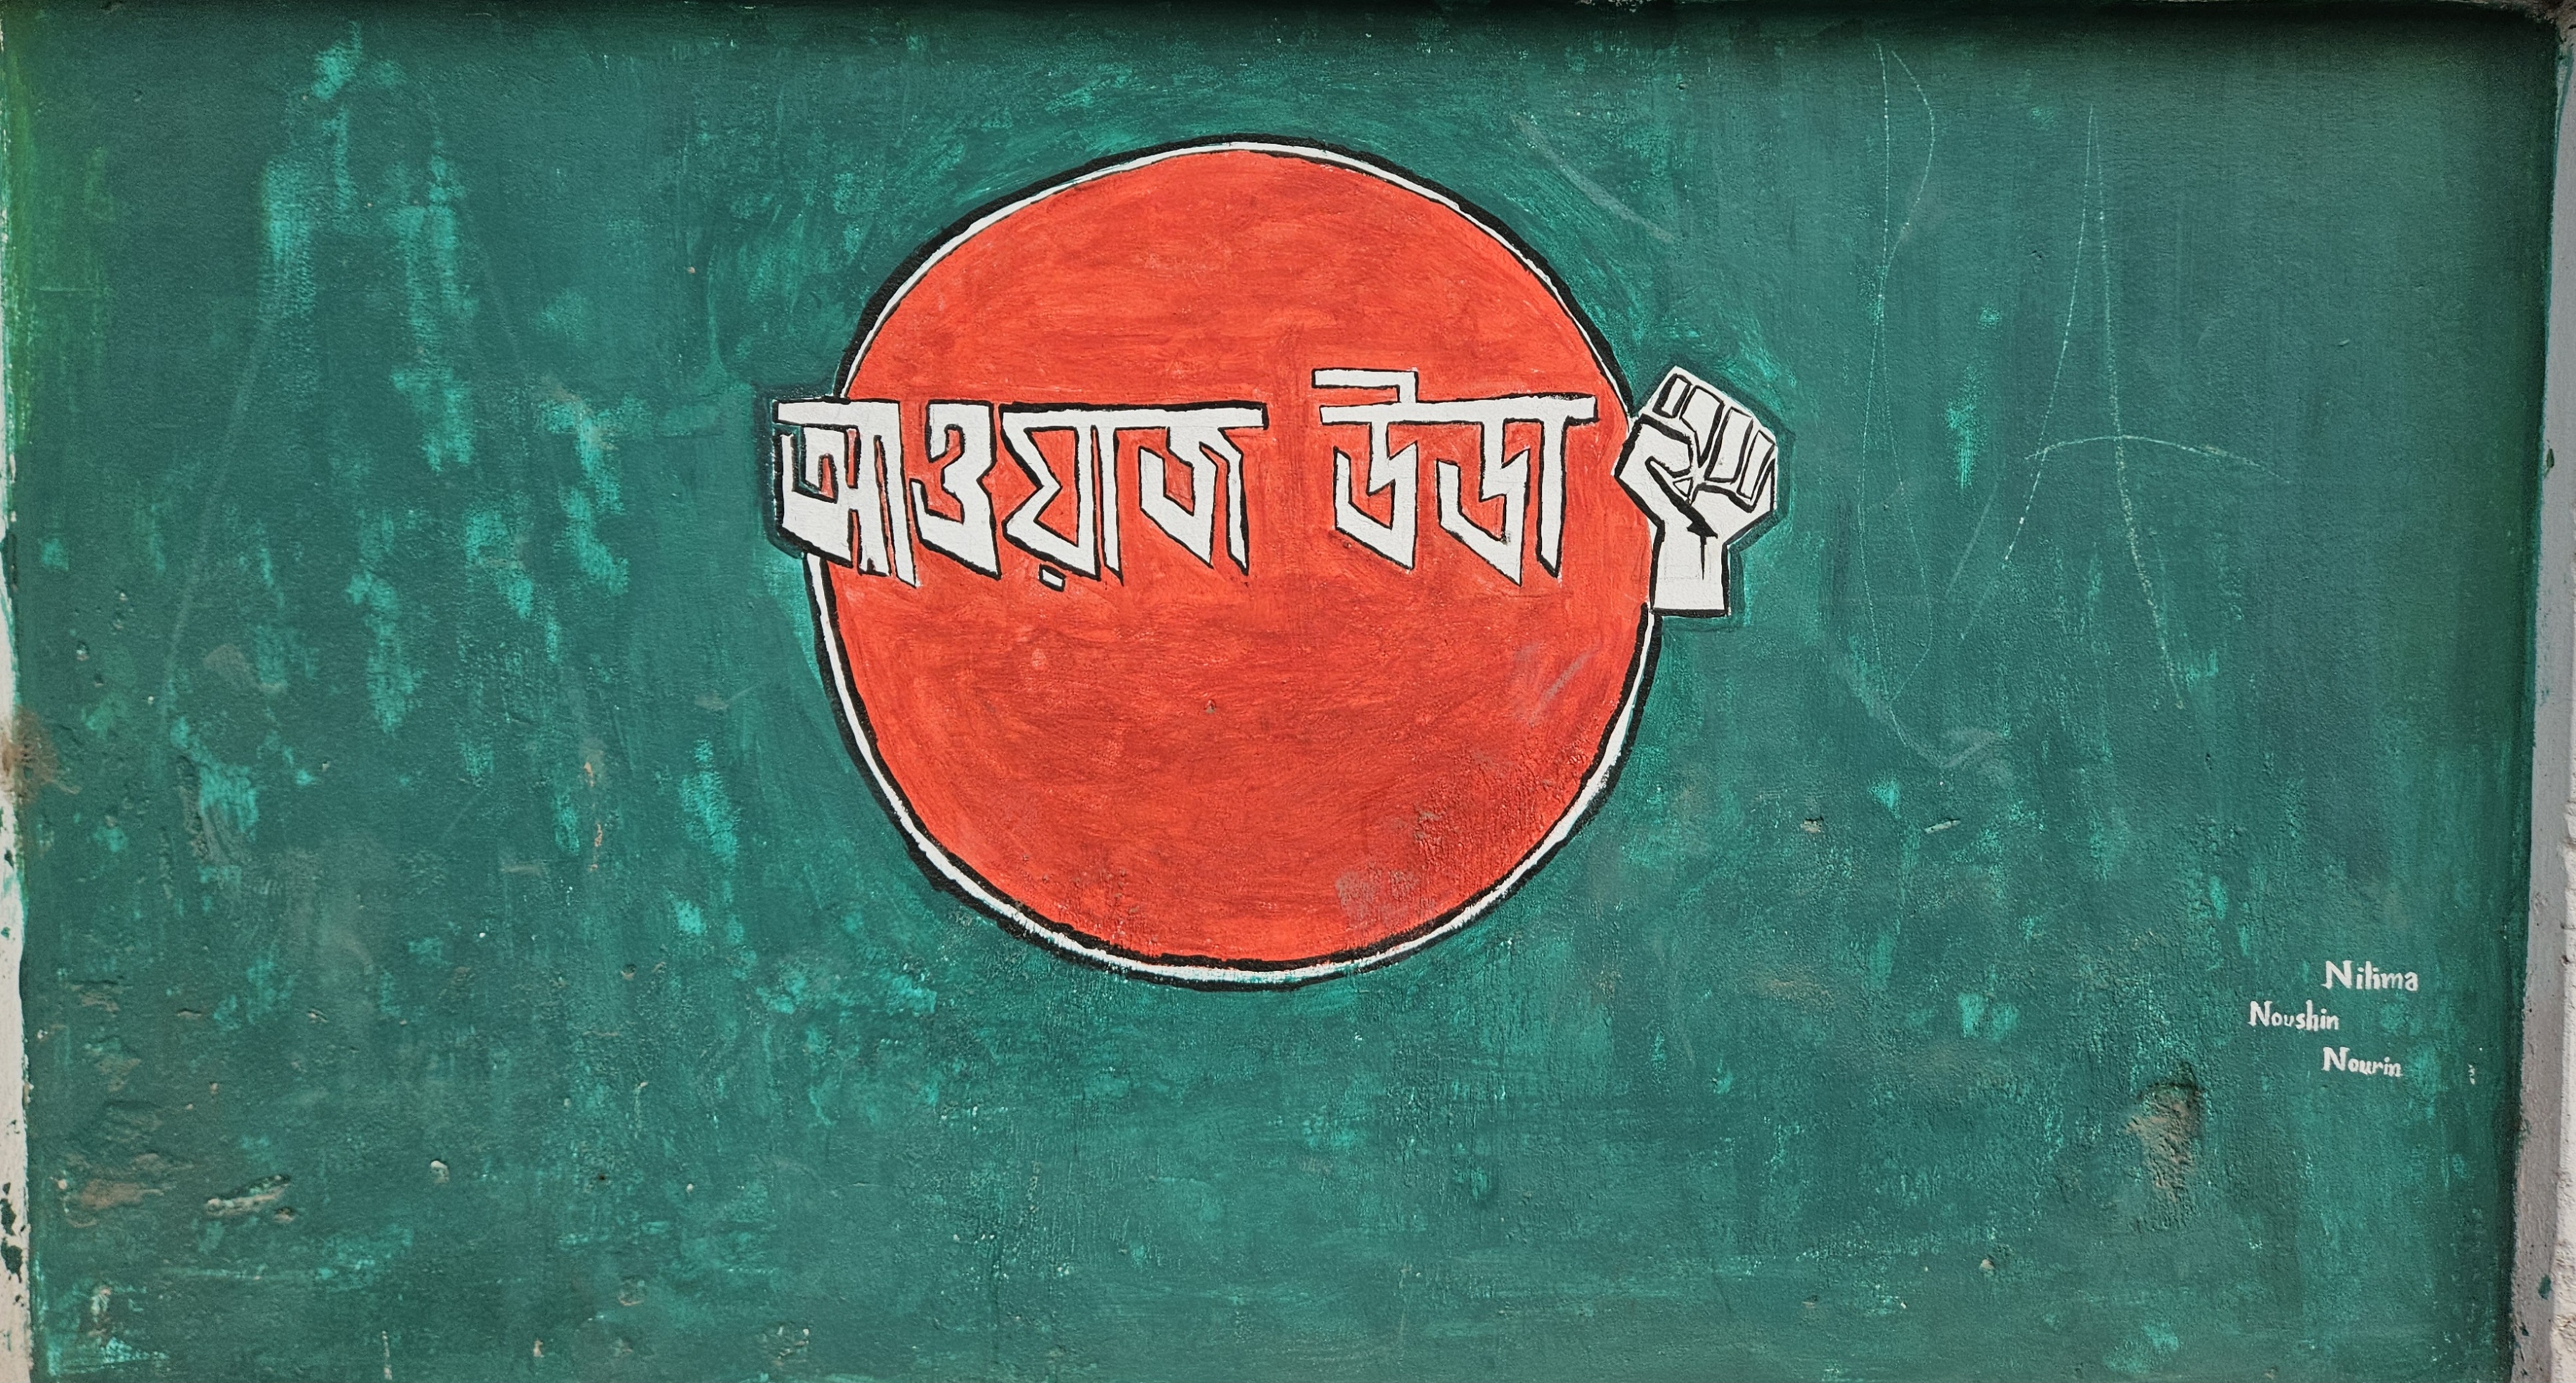 আওয়াজ উডা
Nilima
Noushin
Nourin